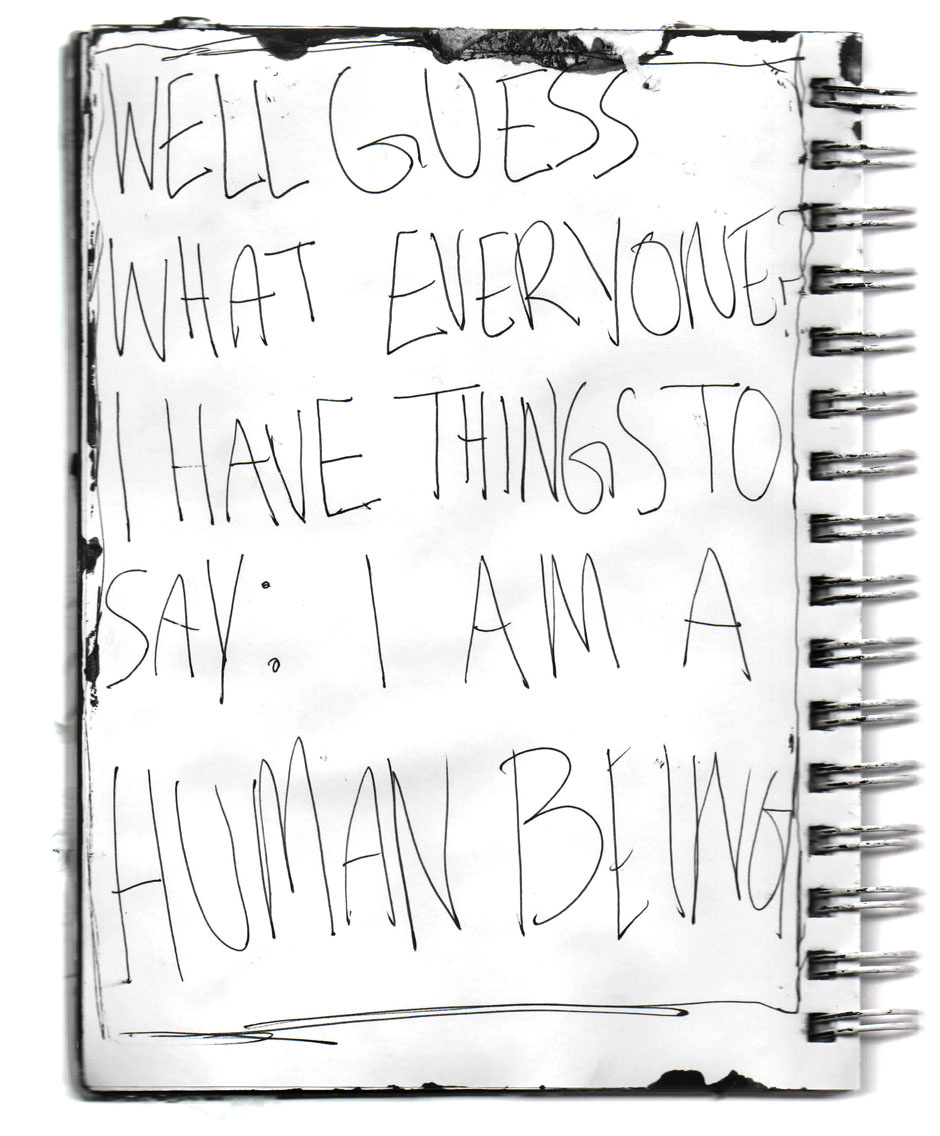 WELL GUESS
WHAT EVERYONE?
I HAVE THINGS TO
SAY: I AM A
HUMAN BEING